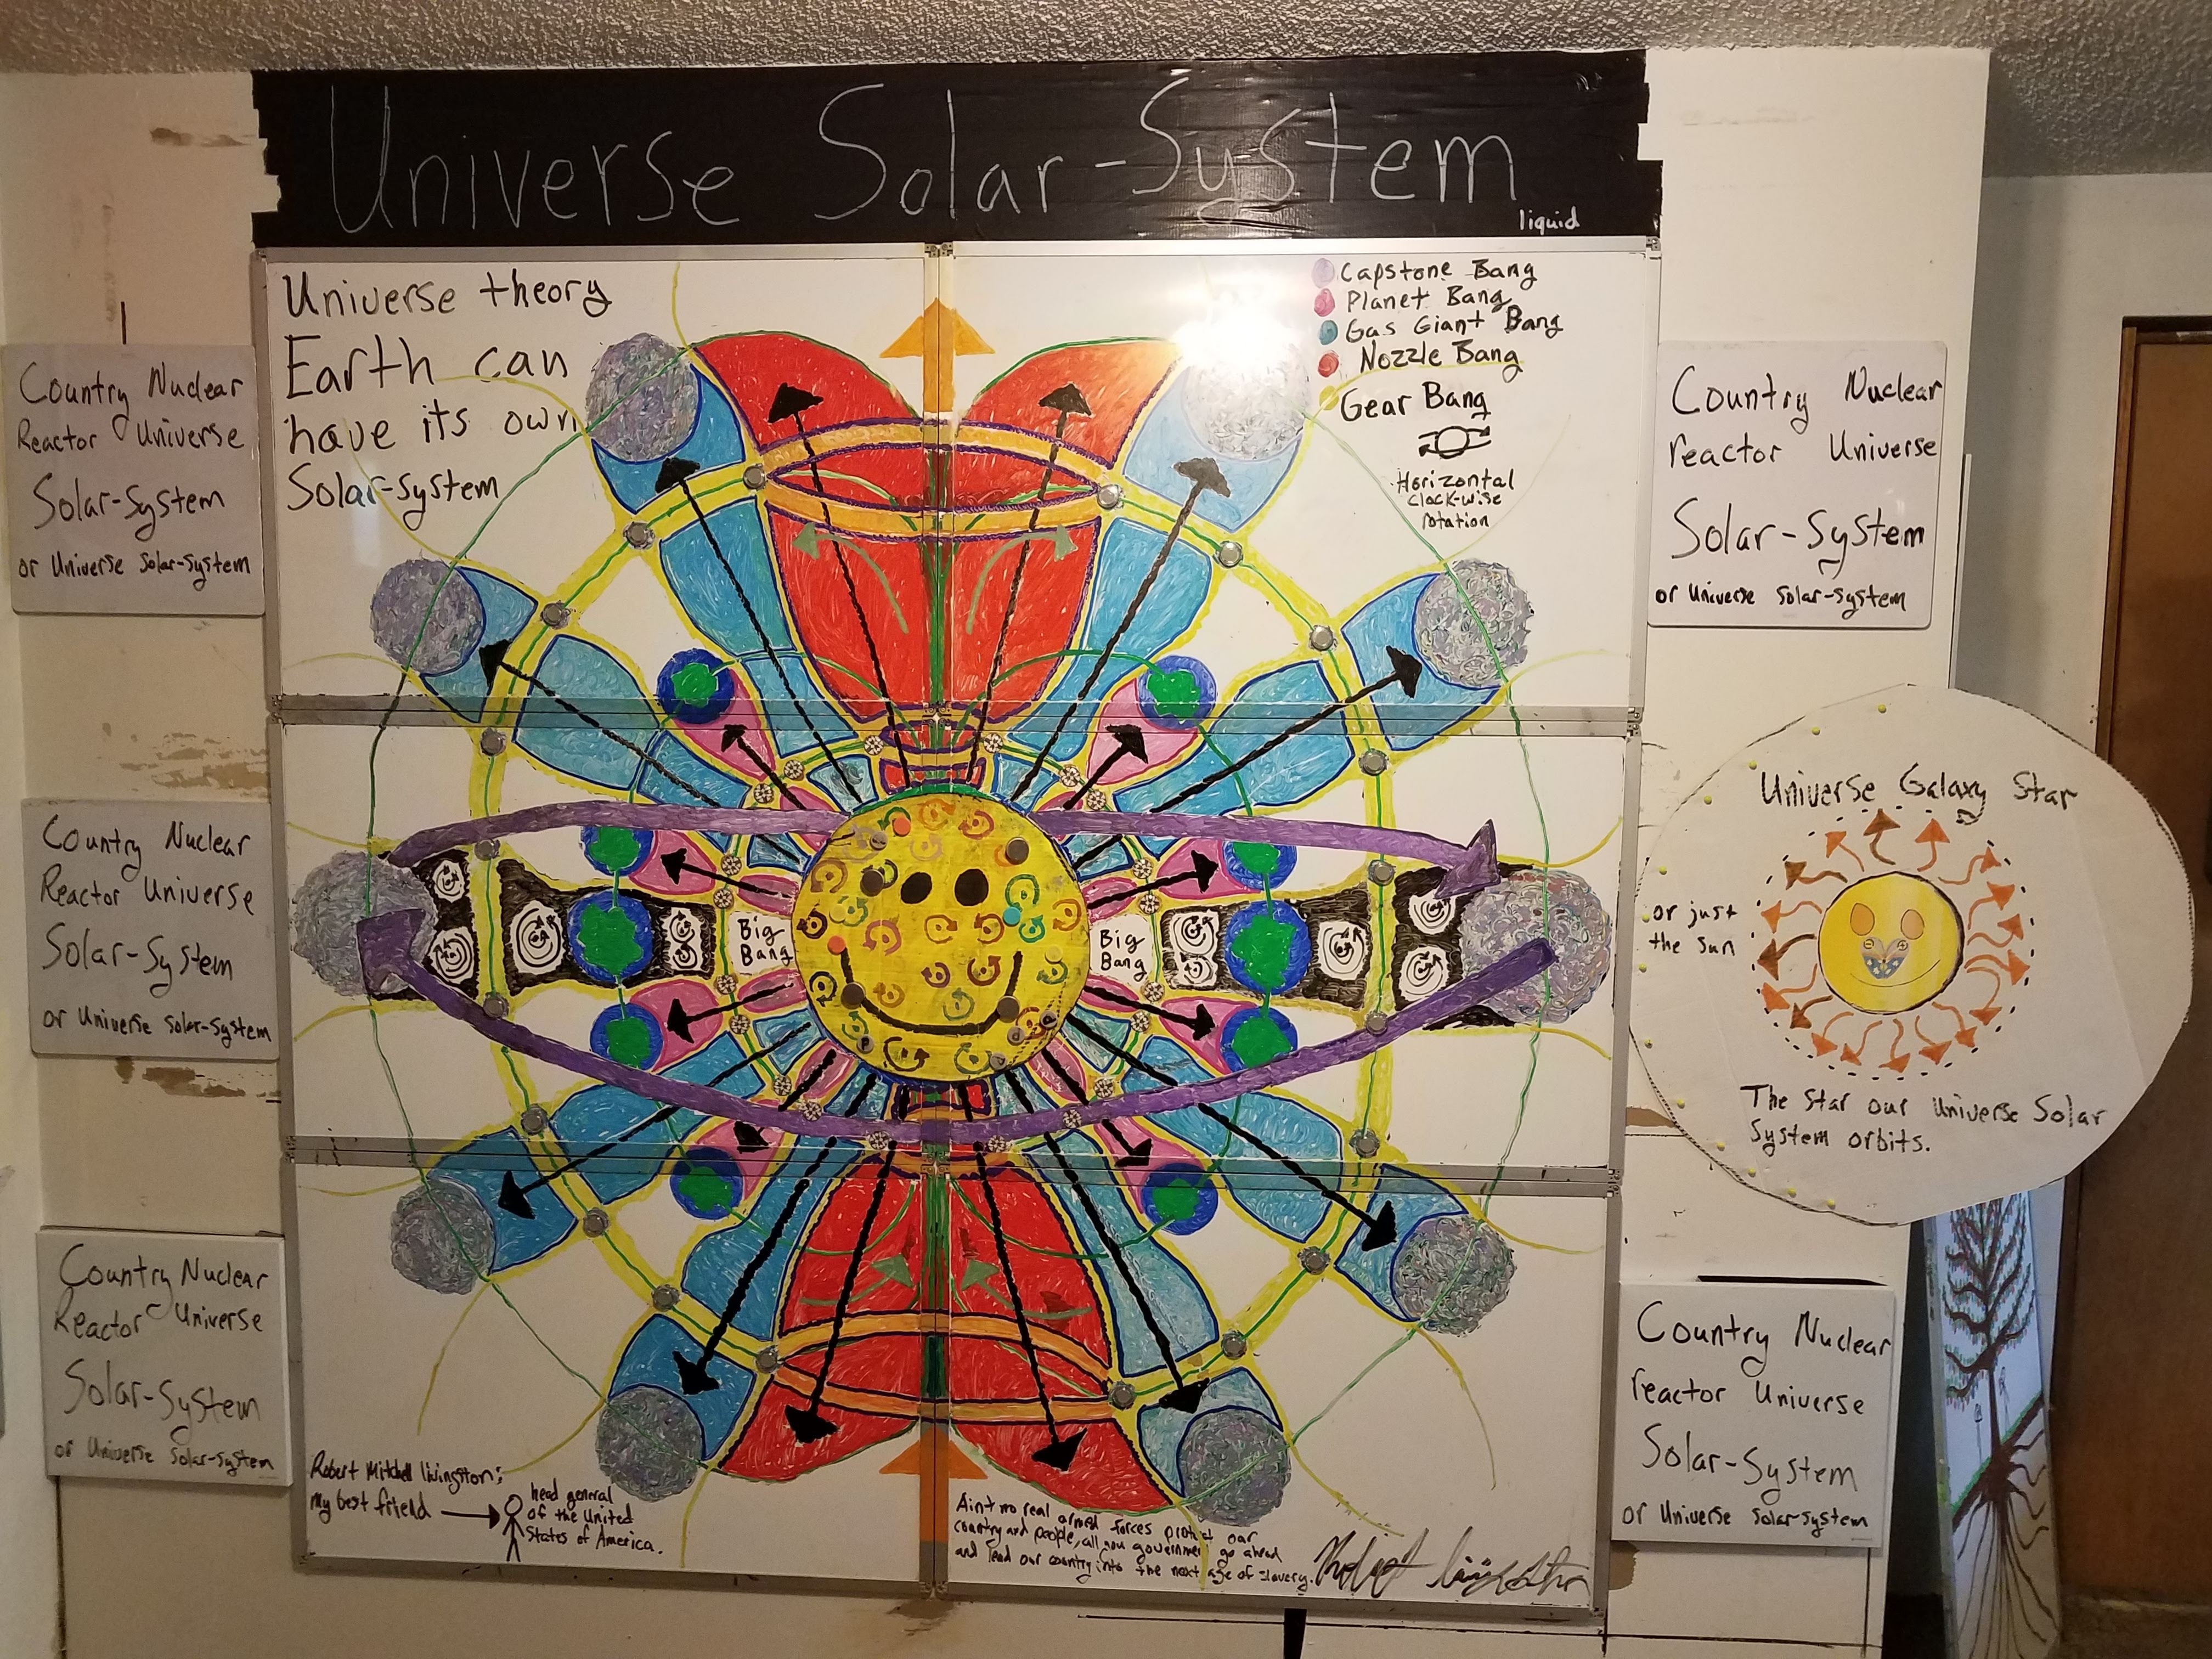 Universe Solar-System
liquid
Universe theory
Earth can
have its own
Solar-System
Capstone Bang
Planet Bang
Gas Giant Bang
Nozzle Bang
Gear Bang
Horizontal
Clock-wise
rotation
Country Nuclear
Reactor Universe
Solar-System
or Universe Solar-System
Country Nuclear
reactor Universe
Solar-System
or Universe Solar-System
Country Nuclear
Reactor Universe
Solar-System
or Universe Solar-System
Big
Bang
Big
Bang
Universe Galaxy Star
or just
the sun
The Star our Universe Solar
System orbits.
Country Nuclear
Reactor Universe
Solar-System
or Universe Solar-System
Country Nuclear
reactor Universe
Solar-System
or Universe Solar-System
Robert Mitchell livingston;
my best friend
head general
of the United
States of America.
Aint no real armed forces protect our
country and people, all you government go ahead
and lead our country into the next age of slavery.